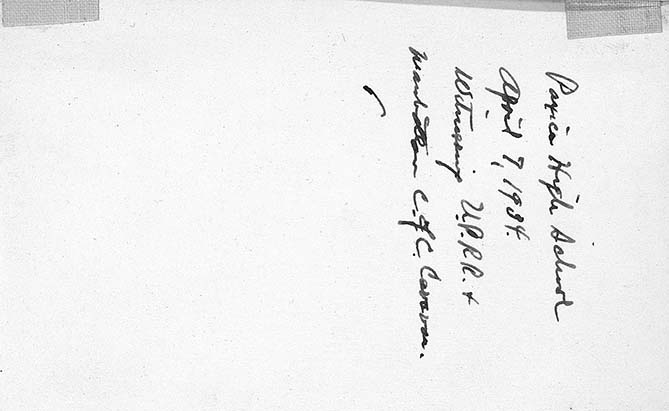 Paxico High School
April 7, 1934.
Witnessing U.P.R.R. &
Manhattan C. of C. Caravan.